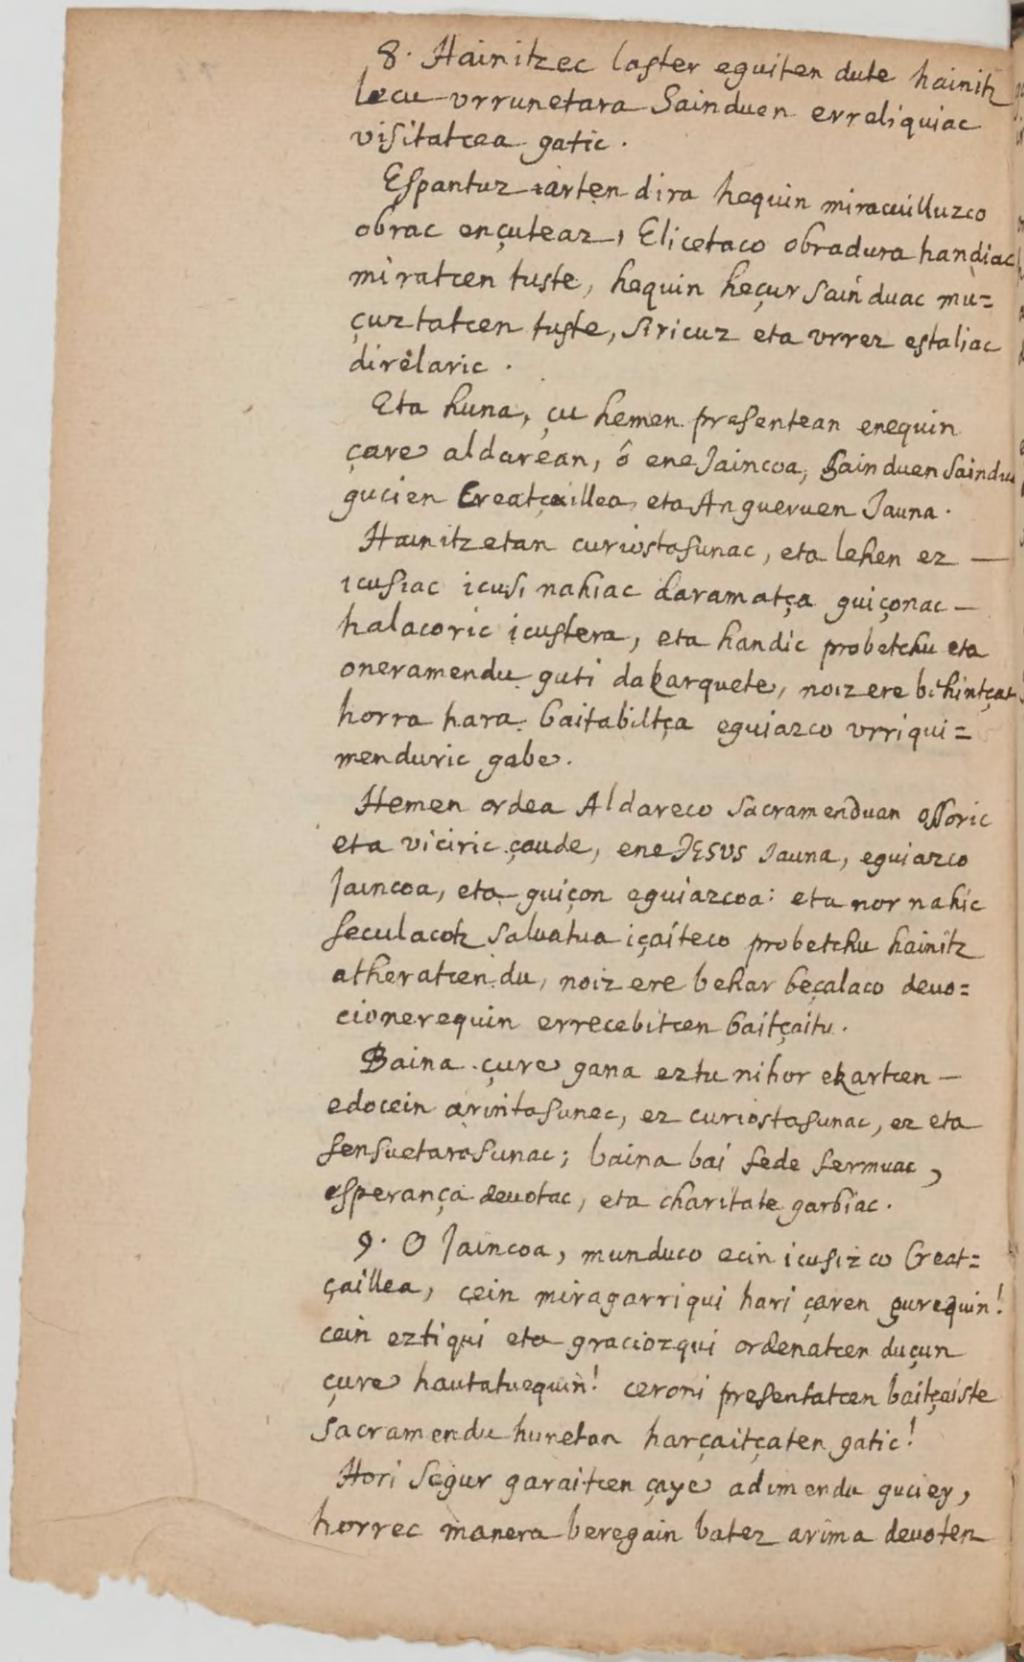 8. Hainitzec laster eguiten dute hainitz
lecu vrrunetara Sainduen erreliquiac
visitatcea gatic.
Espantuz iarten dira hequin miracuilluzco
obrac ençuteaz, Elicetaco obradura handiac
miratcen tuste, hequin heçur sainduac mu=
çuztatcen tuste, siricuz eta vrrez estaliac
direlaric.
Eta huna, çu hemen presentean enequin
çare aldarean, ô ene Jaincoa, Sainduen saindu
gucien Creatçaillea, eta Angueruen Jauna.
Hainitzetan curiostasunac, eta lehen ez —
icusiac icusi nahiac daramatça guiçonac —
halacoric icustera, eta handic probetchu eta
oneramendu guti dakarquete, noiz ere bihintçat
horra hara baitabiltça eguiazco vrriqui=
menduric gabe.
Hemen ordea Aldareco sacramenduan ossoric
eta viciric çaude, ene JESUS Jauna, eguiazco
Jaincoa, eta guiçon eguiazcoa: eta nor nahic
seculacotz saluatua içaiteco probetchu hainitz
atheratcen du, noiz ere behar beçalaco deuo=
cionerequin errecebitcen baitçaitu.
Baina çure gana eztu nihor ekartcen —
edocein arintasunec, ez curiostasunac, ez eta
sensuetarasunac; baina bai fede fermuac,
esperança deuotac, eta charitate garbiac.
9. O Jaincoa, munduco ecin icusizco Creat=
çaillea, cein miragarriqui hari çaren gurequin!
cein eztiqui eta graciozqui ordenatcen duçun
çure hautatuequin! ceroni presentatcen baitçaiste
sacramendu hunetan harçaitçaten gatic!
Hori segur garaitcen çaye adimendu guciey,
horrec manera beregain batez arima deuoten